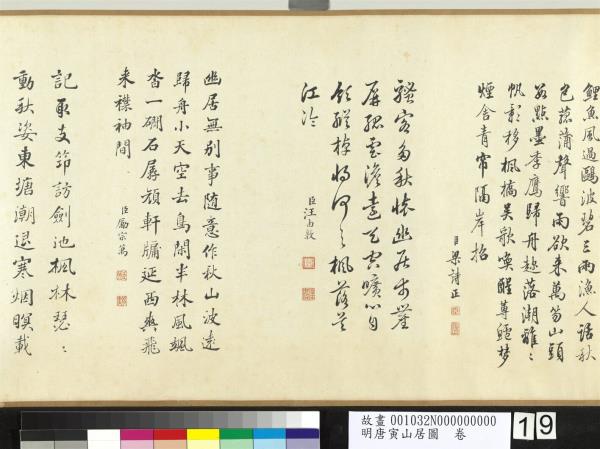 鯉魚風過鷗波碧三兩漁人話秋
色菰蒲聲響雨欲來萬笏山頭
點墨季鷹歸舟趁落潮離〻
帆影移楓橋吳歌喚醒蓴鱸夢
煙含青帘隔岸招
臣梁詩正
騷客多秋懷幽居
雲澹遠天空曠心目
楓落吳
江冷
臣汪由敦
幽居無別事隨意作秋山波遠
歸舟小天空去鳥閑半林風颯
沓一磵石孱顏軒牖延西爽飛
來襟袖間
臣勵宗萬
記取支筇訪劍池楓林瑟〻
動秋姿東塘潮退寒烟暝載
故畫 001032N000000000
明唐寅山居圖 卷
19